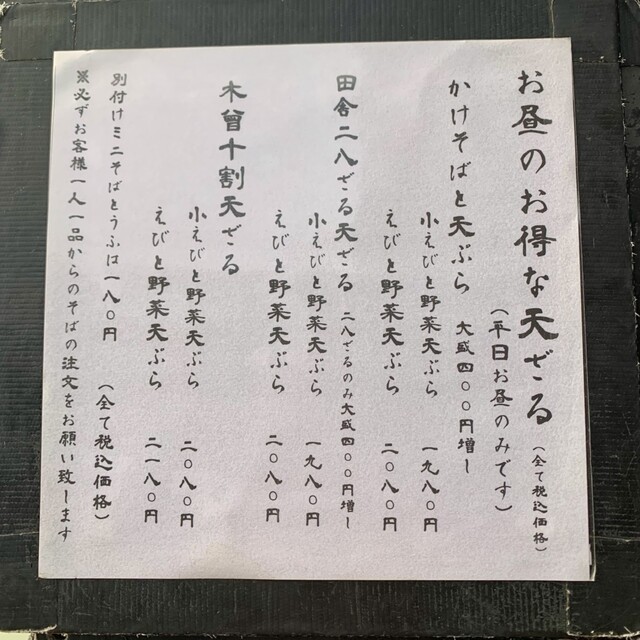 お昼のお得な天ざる（全て税込価格）
（平日お昼のみです）
かけそばと天ぷら 大盛四〇〇円増し
小えびと野菜天ぷら 一九八〇円
えびと野菜天ぷら 二〇八〇円
田舎二八ざる天ざる 二八ざるのみ大盛四〇〇円増し
小えびと野菜天ぷら 一九八〇円
えびと野菜天ぷら 二〇八〇円
木曽十割天ざる
小えびと野菜天ぷら 二〇八〇円
えびと野菜天ぷら 二一八〇円
別付けミニそばとうふは一八〇円 （全て税込価格）
※必ずお客様一人一品からのそばの注文をお願い致します